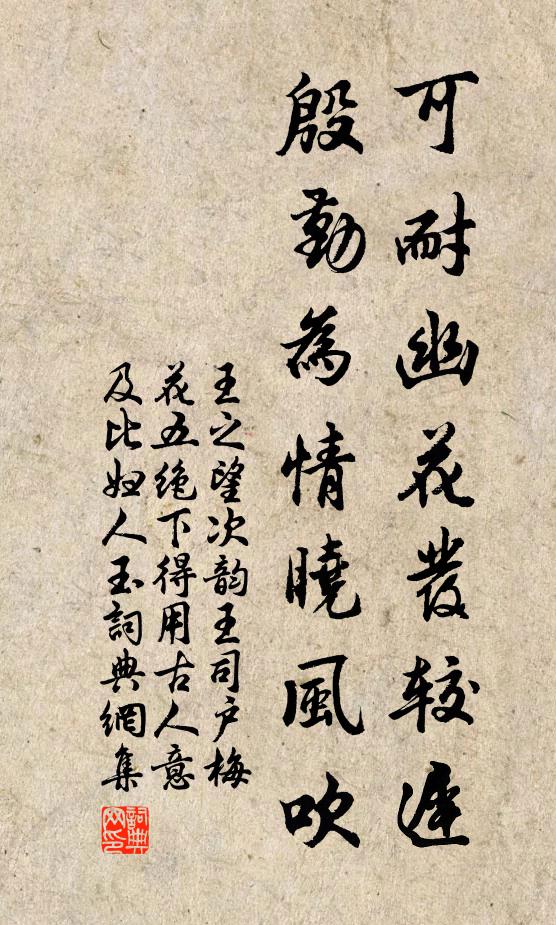 可耐幽花發較遲
殷勤為情曉風吹
王之望次韵王司户梅
花五絶下得用古人意
及比妇人玉詞典網集
詞典网印